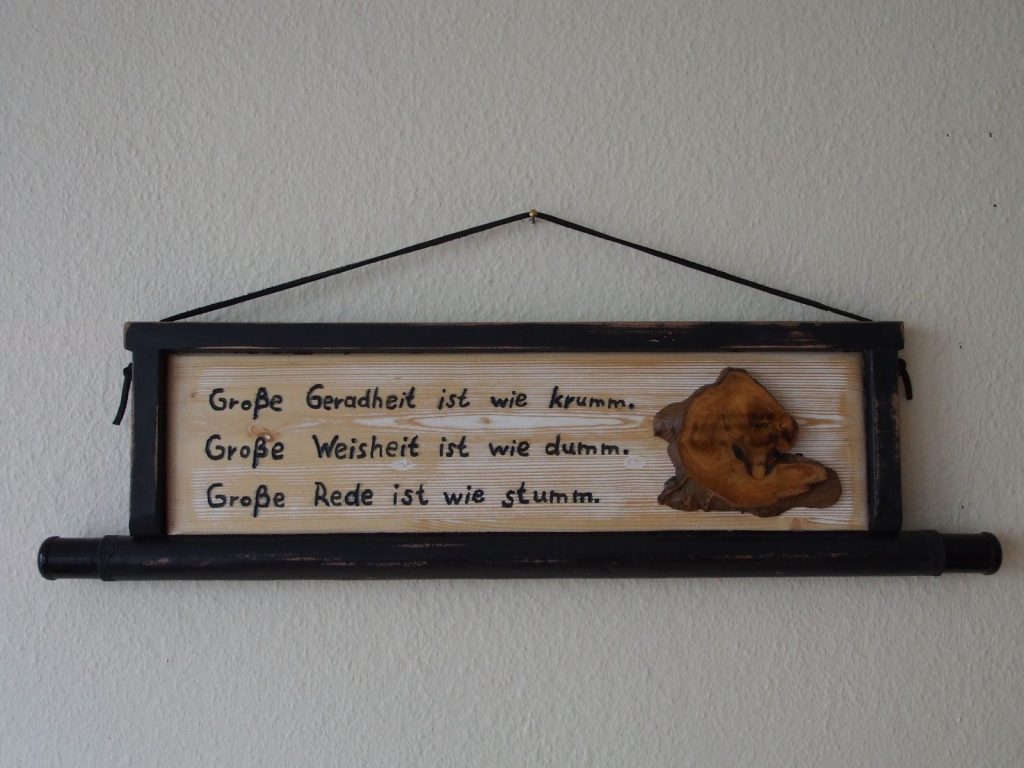 Große Geradheit ist wie krumm.
Große Weisheit ist wie dumm.
Große Rede ist wie stumm.